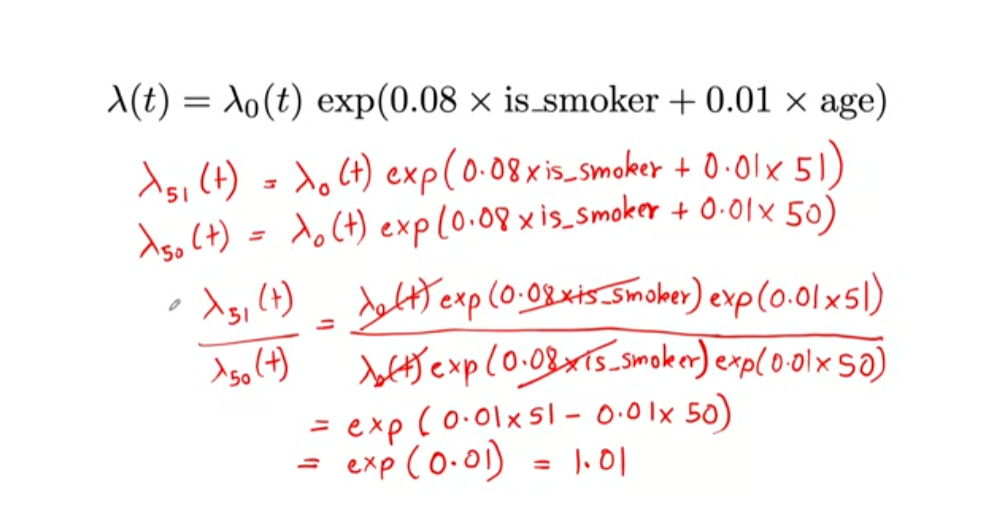 λ(t) = λ₀(t) exp(0.08 × is_smoker + 0.01 × age)
λ₅₁(t) = λ₀(t) exp(0.08 x is_smoker + 0.01 x 51)
λ₅₀(t) = λ₀(t) exp(0.08 x is_smoker + 0.01 x 50)
λ₅₁(t) / λ₅₀(t) = λ₀(t) exp(0.08 x is_smoker) exp(0.01 x 51) / λ₀(t) exp(0.08 x is_smoker) exp(0.01 x 50)
= exp(0.01 x 51 - 0.01 x 50)
= exp(0.01) = 1.01